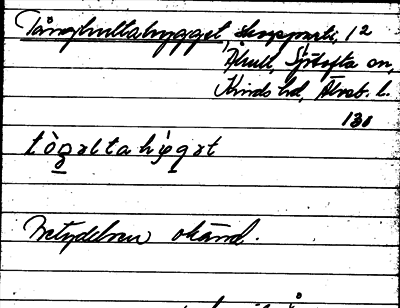 Tånghultahygget, skogsparti, 12
Älmult, Sjötofta sn,
Kinds hd, Älvsb. l.
131
tògəltahy̨gət
Betydelsen okänd.